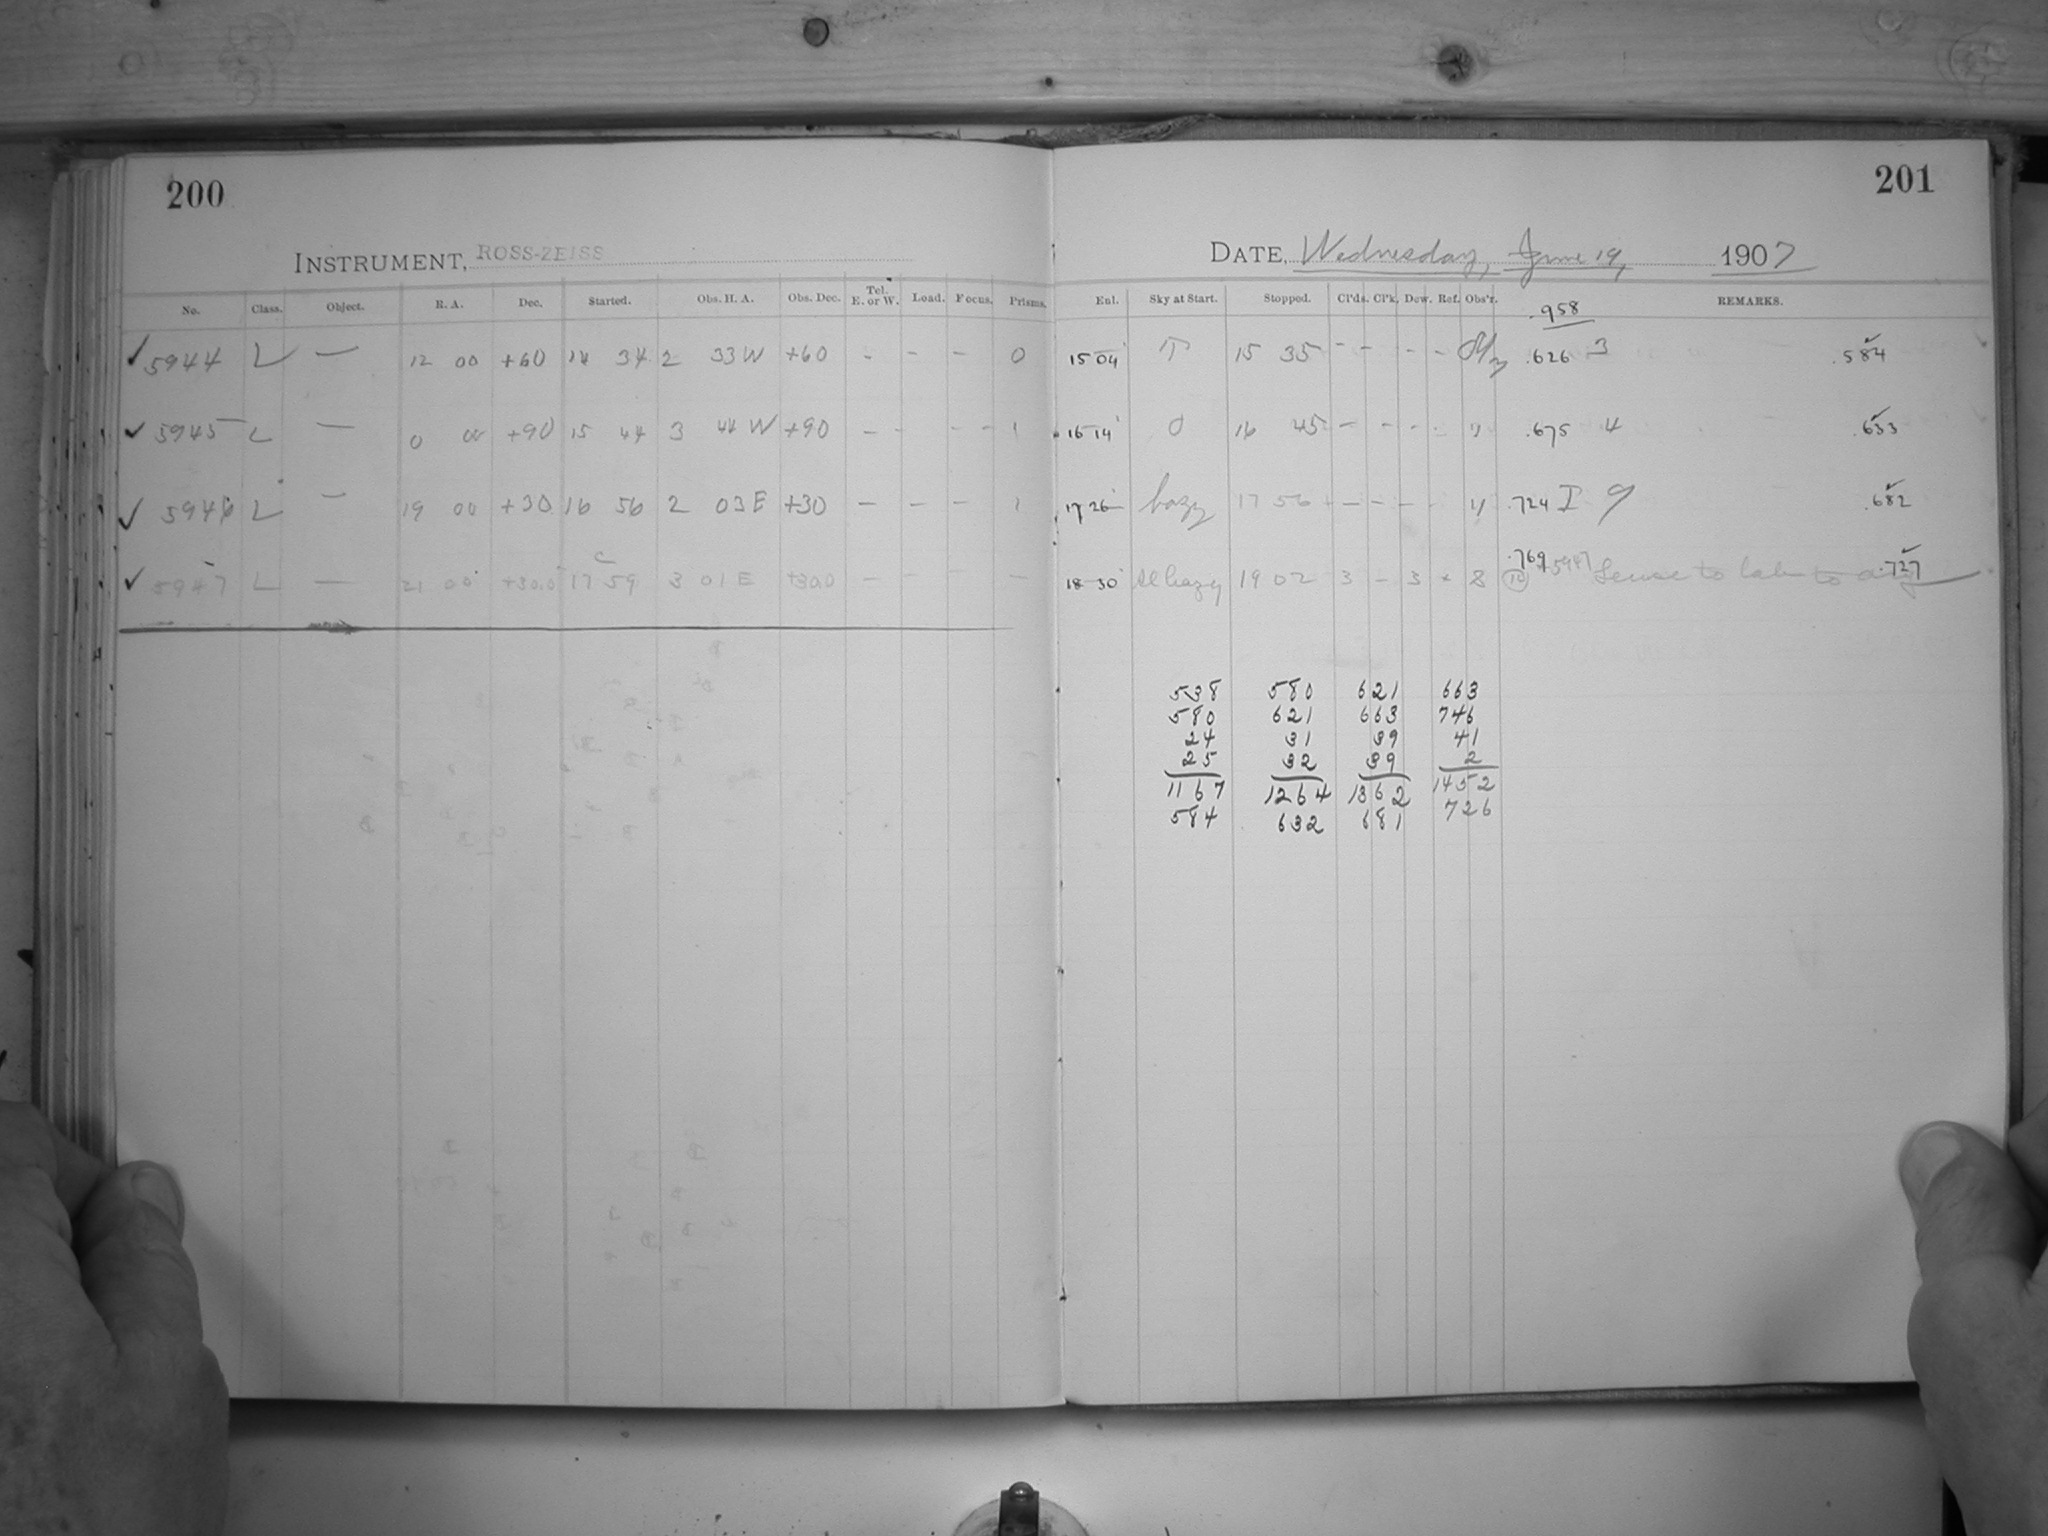 200
INSTRUMENT, ROSS-ZEISS
No. Class. Object. R. A. Dec. Started. Obs. H. A. Obs. Dec. Tel. E. or W. Load. Focus. Prisms.
✓ 5944 L — 12 00 +60 14 34 2 33 W +60 - - - 0
✓ 5945 L — 0 00 +90 15 44 3 44 W +90 - - - - 1
✓ 5946 L — 19 00 +30 16 56 2 03 E +30 - - - 1
✓ 5947 L — 21 00 +30.0 17 59 3 01 E +30.0 - - - -
201
DATE, Wednesday, June 19, 1907
Enl. Sky at Start. Stopped. Cl'ds. Cl'k. Dew. Ref. Obs'r. REMARKS.
.958
15 04 15 35 - - - - .626 3 .584
16 14 0 16 45 - - - - " .675 4 .633
17 26 hazy 17 56 - - - - " .724 I 9 .682
18 30 hazy 19 02 3 - 3 8 .769 5947 .727
538 580 621 663
580 621 663 746
24 31 39 41
25 32 39 2
1167 1264 1362 1452
584 632 681 726